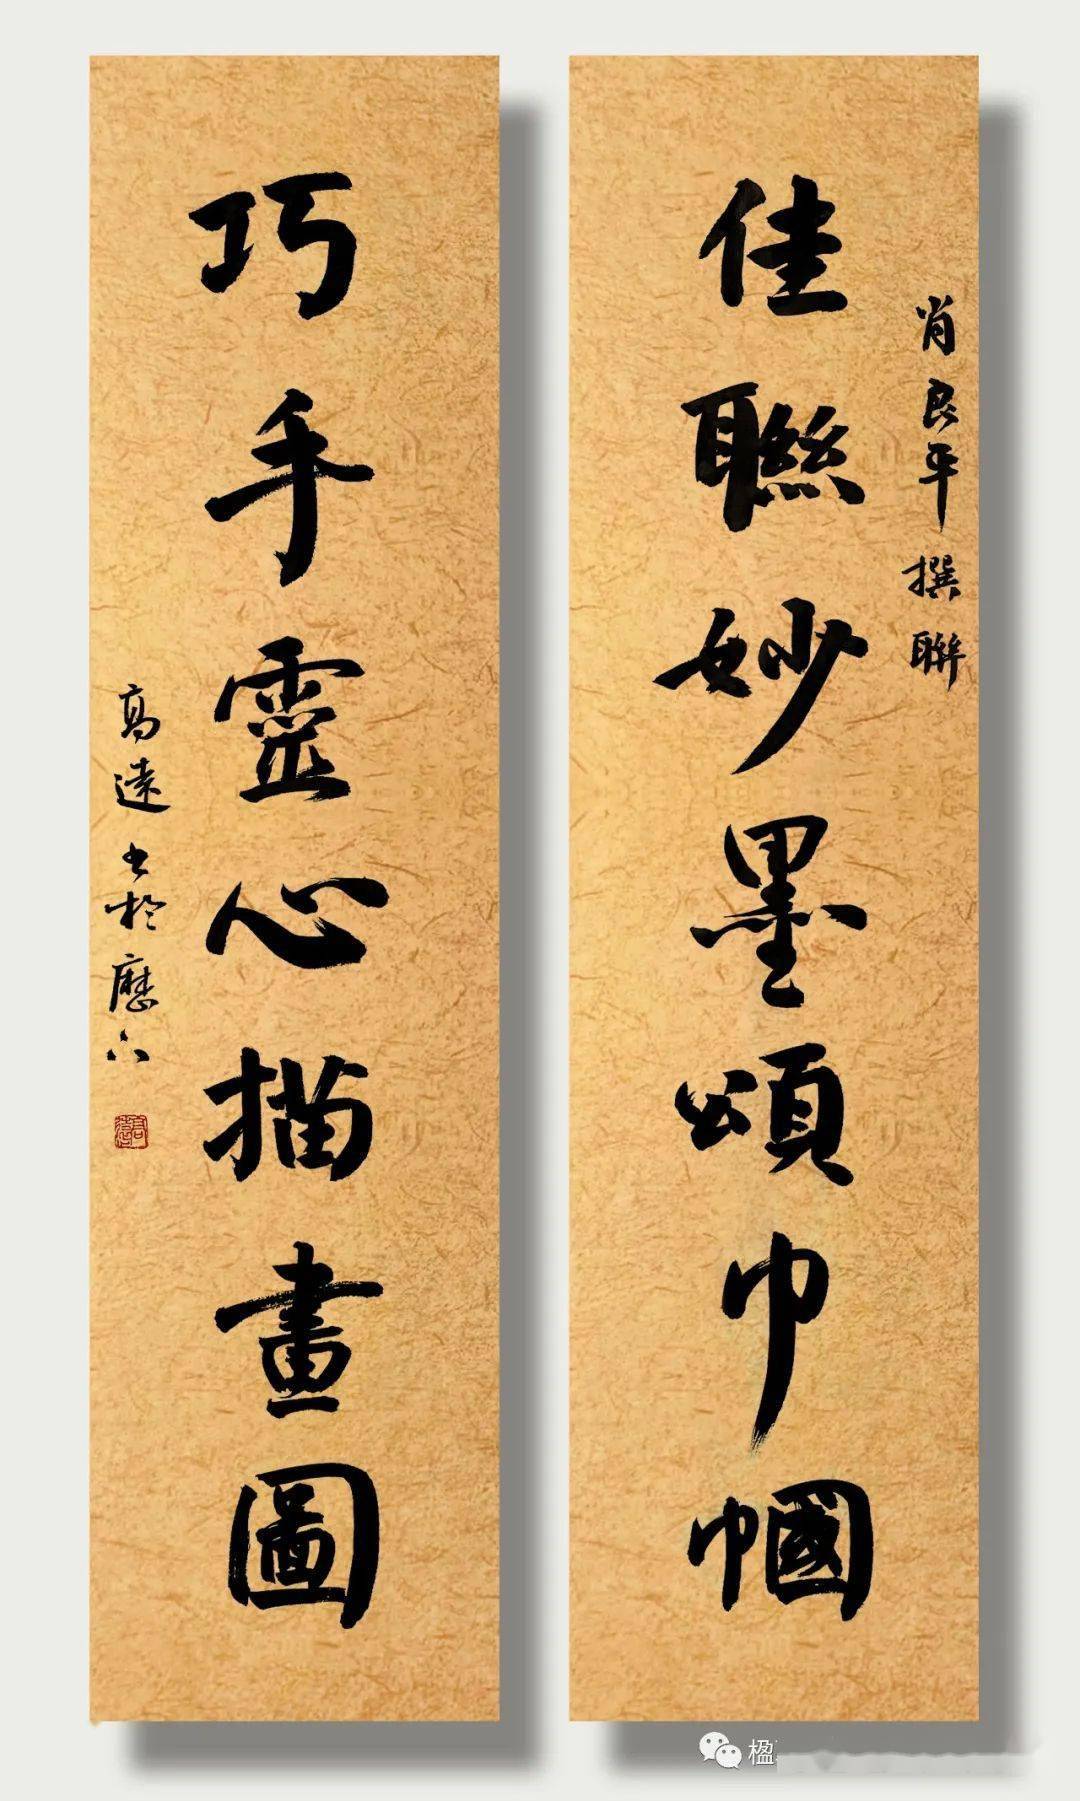 肖良平撰聯
佳聯妙墨頌巾幗
巧手靈心描畫圖
高遠書於歷下
高遠
楹